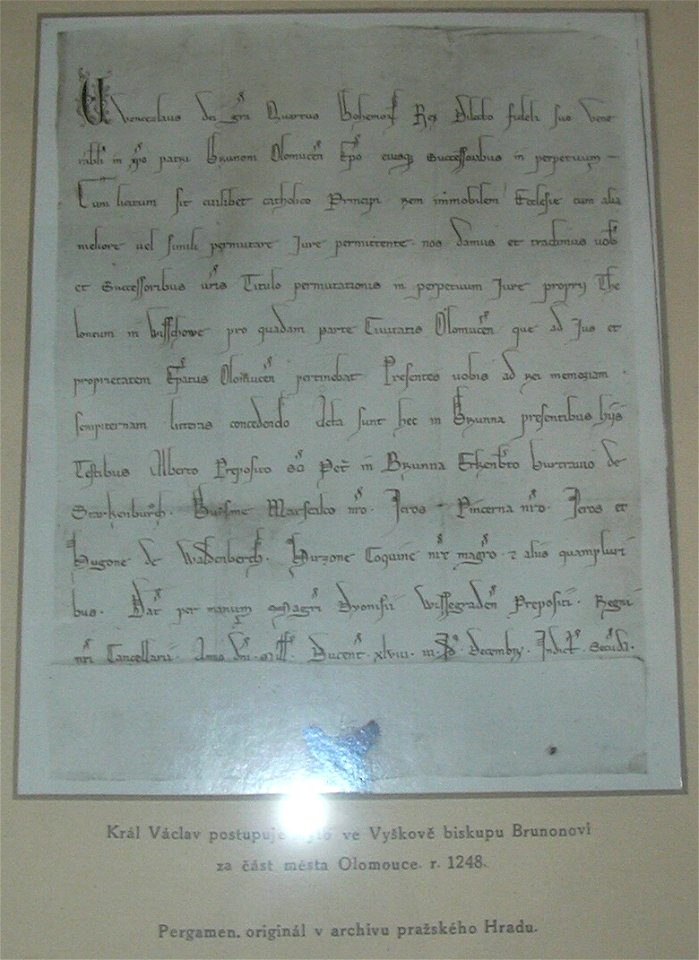 Wenceslaus dei gra Quartus Bohemor Rex Dilecto fideli suo Vene
rabli in xpo patri Brunoni Olomucen Epo eiusq; Successoribus in perpetuum
Cum licitum sit cuilibet catholico Principi rem immobilem Ecclesie cum alia
meliore uel simili permutare Jure permittente nos damus et tradimus uob
et Successoribus uris Titulo permutationis in perpetuum Jure proprij The
loneum in Wisschowe pro quadam parte Ciuitatis Olomucen que ad Jus et
proprietatem Epatus Olomucen pertinebat Presentes uobis ad rei memoriam
sempiternam litteras concedendo Acta sunt hec in Brunna presentibus hijs
Testibus Alberto Preposito Petr in Brunna de
Starkenburch. Marscalco nro. Jeros Pincerna nro. Jeros et
Hugone de Waldenberch. Hirzone Coquine nre magro. 7 alijs quampluri
bus. Dat per manum Magri Dyonisii Wissegraden Prepositi. Regni
nri Cancellarii. Anno dni. Ducent. xlviii. iii. Decembr. Indict. Secudi.
Král Václav postupuje ve Vyškově biskupu Brunonovi
za část města Olomouce. r. 1248.
Pergamen. originál v archivu pražského Hradu.